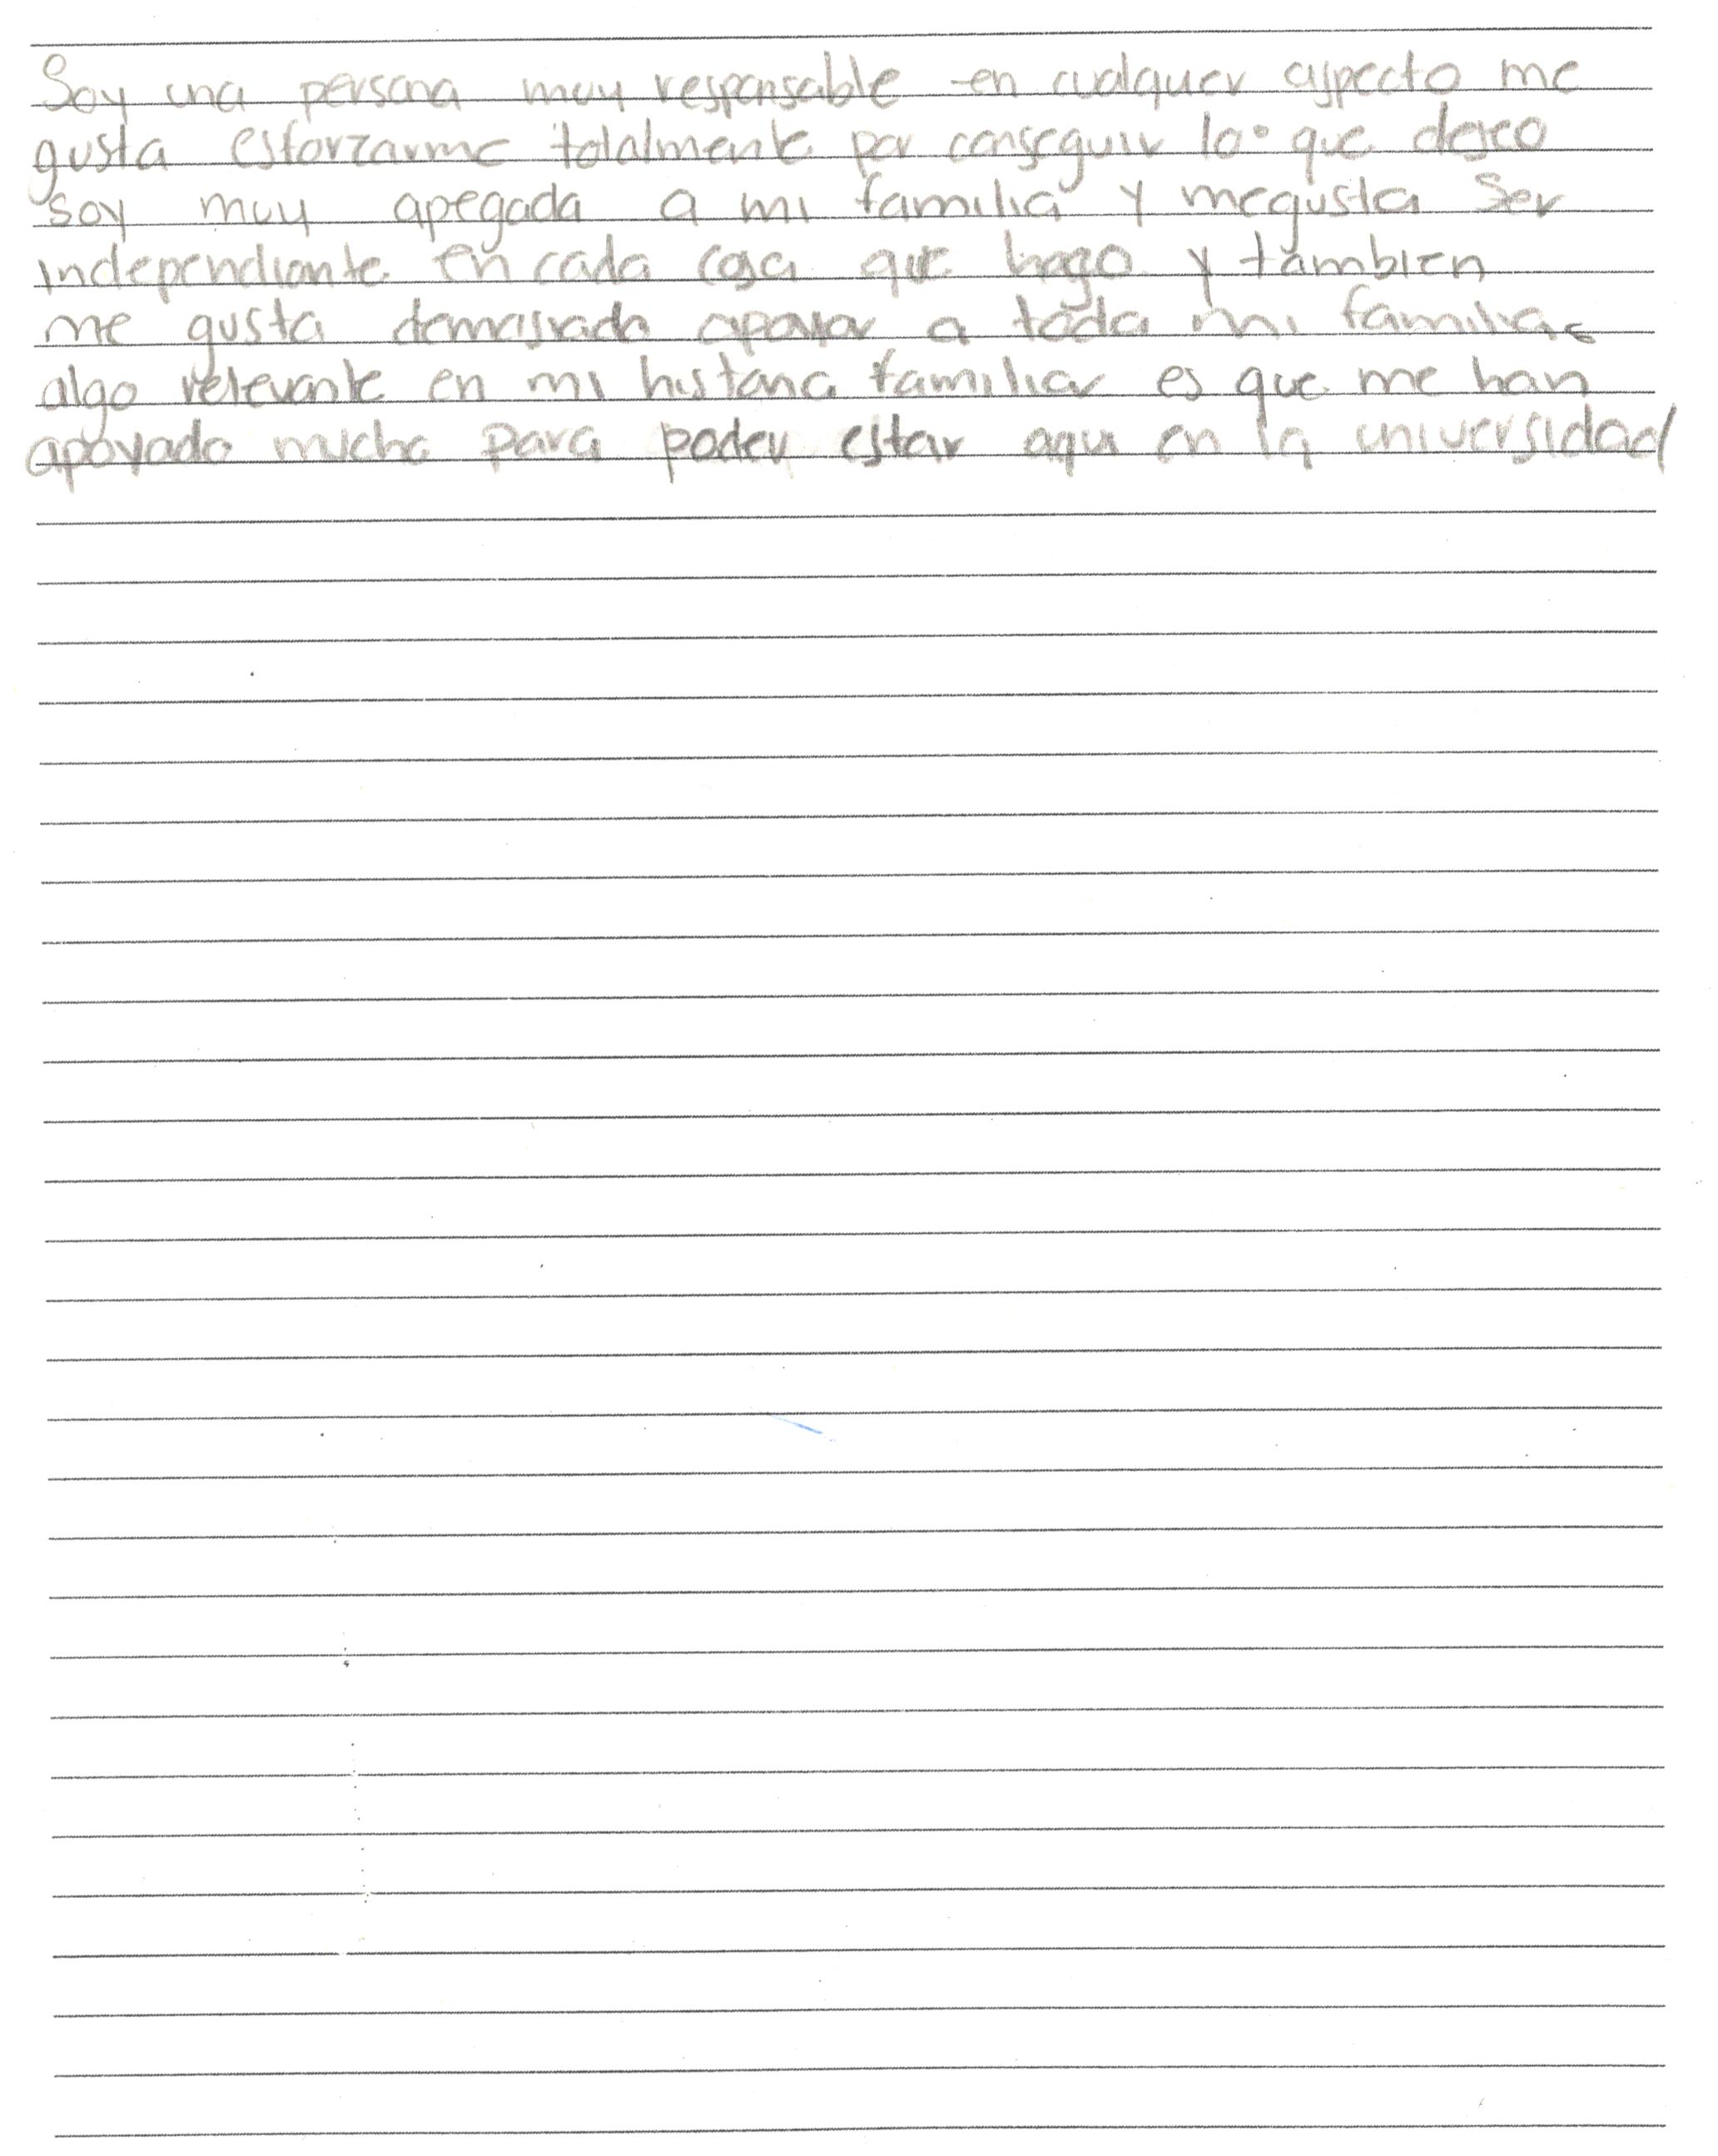 Soy una persona muy responsable en cualquer aspecto me
gusta esforzarme totalmente por conseguir lo que deseo
soy muy apegada a mi familia y megusta ser
independiante en cada cosa que hago y tambien
me gusta demasiado apoyar a toda mi familia
algo relevante en mi historia familiar es que me han
apoyado mucho para poder estar aqui en la universidad